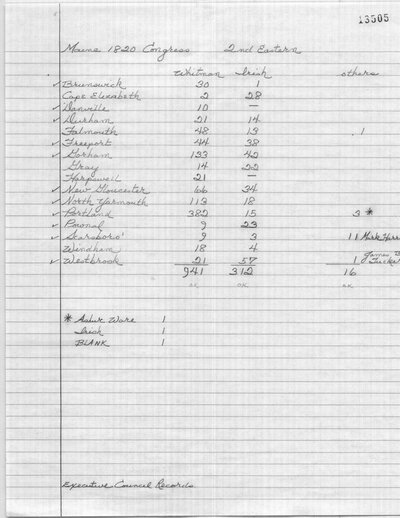 13505
Maine 1820 Congress 2nd Eastern
Whitman Irish others
✓ Brunswick 30 1
Cape Elizabeth 2 28
✓ Danville 10 —
✓ Durham 21 14
Falmouth 48 13 1
✓ Freeport 44 38
✓ Gorham 133 42
Gray 14 22
Harpswell 21 —
✓ New Gloucester 66 34
✓ North Yarmouth 113 18
✓ Portland 382 15 3 *
✓ Pownal 9 23
✓ Scarboro' 9 3 11 Mark Harr
Windham 18 4
✓ Westbrook 21 57 1 James B
941 312 16
OK OK OK
* Ashur Ware 1
Irish 1
BLANK 1
Executive Council Records